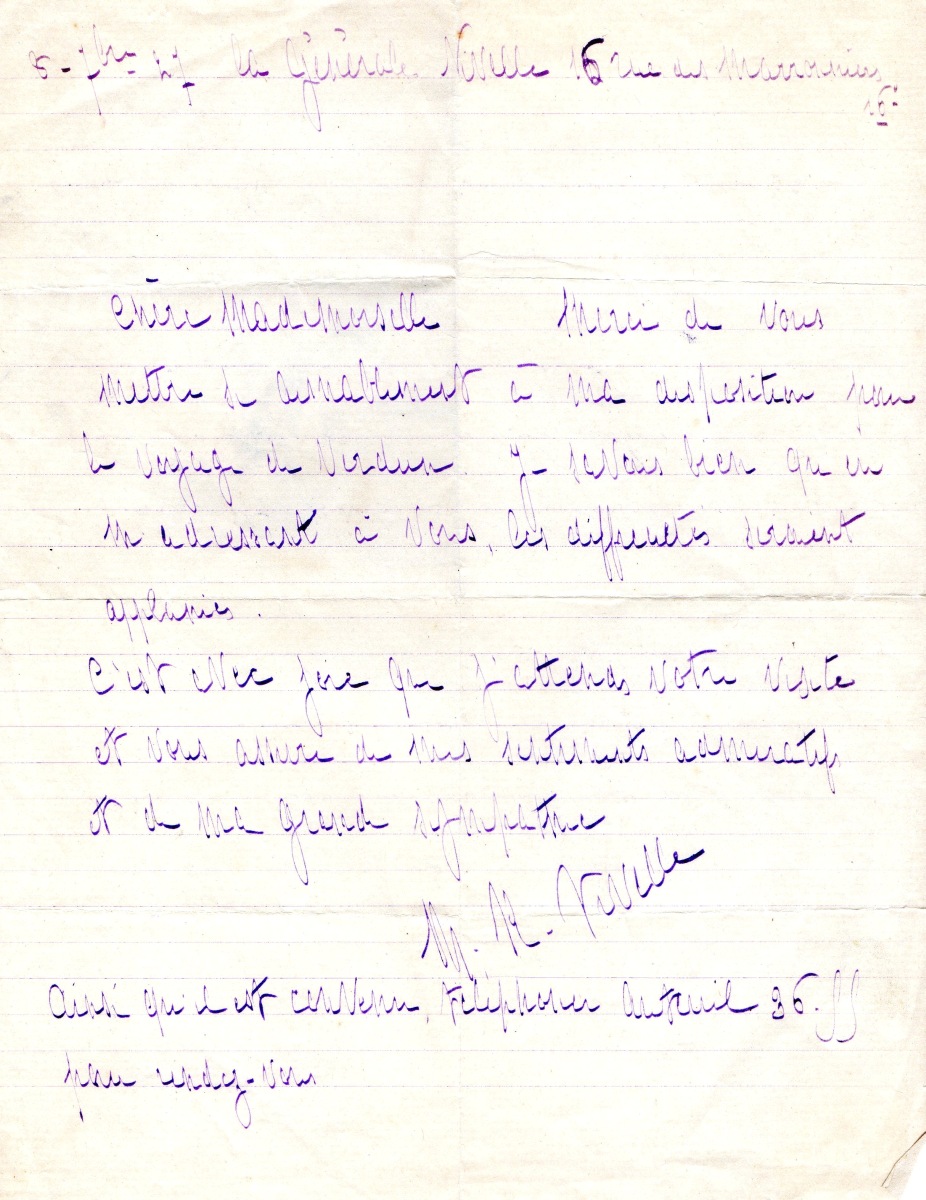 8-7bre 27 la Générale Nivelle 16 rue des Marronniers
16e
Chère Mademoiselle Merci de vous
mettre si aimablement à ma disposition pour
le voyage de Verdun. Je savais bien qu'en
m'adressant à vous, les difficultés seraient
applanies.
C'est avec joie que j'attends votre visite
et vous assure de mes sentiments admiratifs
et de ma grande sympathie
M. R. Nivelle
Ainsi qu'il est convenu, téléphoner Auteuil 36.
pour rendez-vous